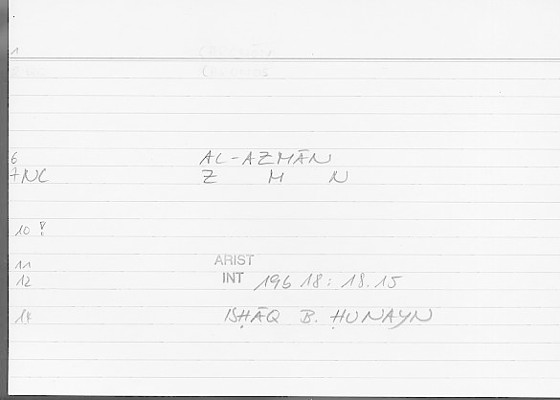 1
6 AL-AZMĀN
7NC Z M N
10
11 ARIST
12 INT 196 18: 18.15
14 ISḤĀQ B. ḤUNAYN